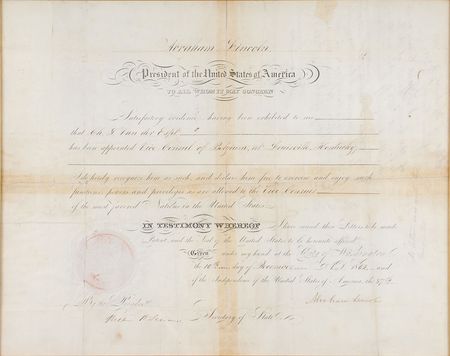 Abraham Lincoln
President of the United States of America
TO ALL WHOM IT MAY CONCERN
Satisfactory evidence having been exhibited to me
that Ch. J. Van der Espt
has been appointed Vice Consul of Belgium, at Louisville, Kentucky,
I do hereby recognize him as such, and declare him free to exercise and enjoy such
functions, powers and privileges as are allowed to the Vice Consuls
of the most favored Nations in the United States.
IN TESTIMONY WHEREOF I have caused these Letters to be made
Patent, and the Seal of the United States to be hereunto affixed.
Given under my hand at the City of Washington
the 10th day of A.D. 186 and
of the Independence of the United States of America, the 87th.
Abraham Lincoln
By the President
Secretary of State